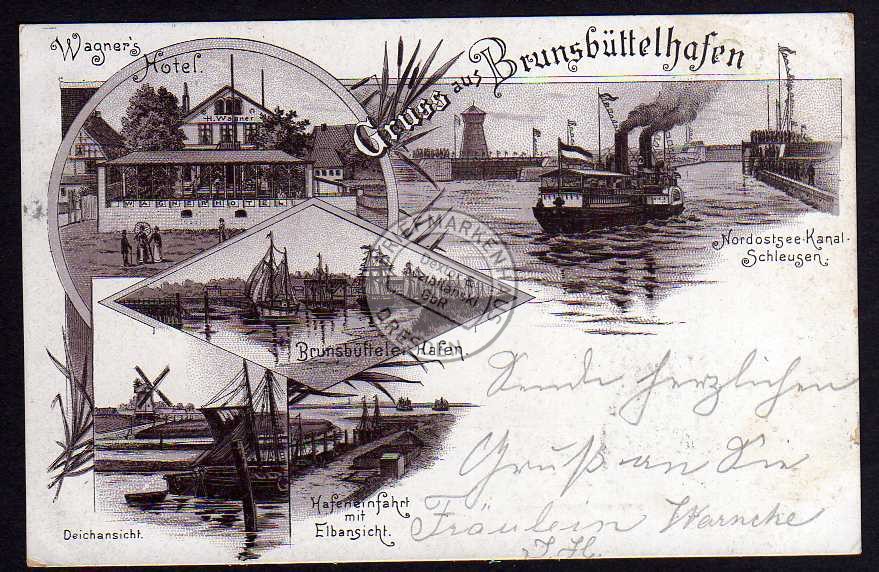 Wagner's
Hotel.
Gruss aus Brunsbüttelhafen
H. Wagner
WAGNER HOTEL
Nordostsee-Kanal-
Schleusen.
Brunsbütteler Hafen.
Deichansicht.
Hafeneinfahrt
mit
Elbansicht.
Sende herzlichen
Gruß an Sie
Fräulein Warncke
J. H.
MARKENHAUS
DRESDEN
GbR